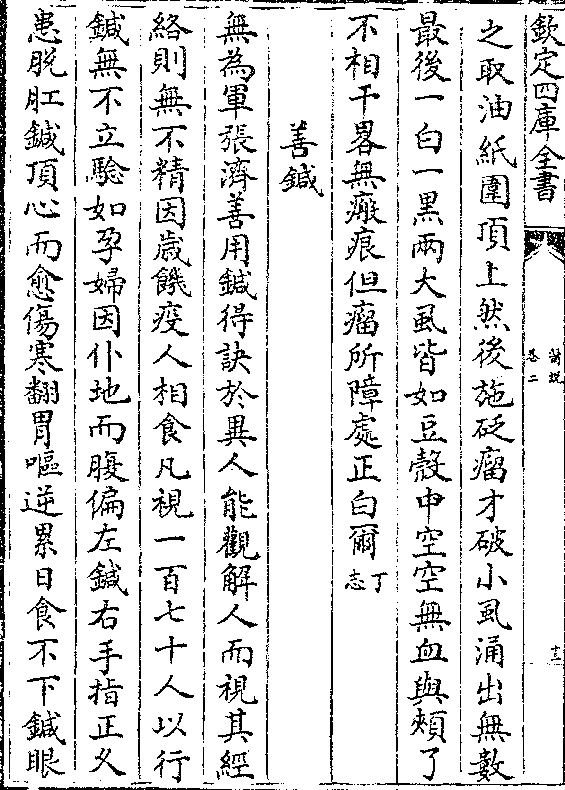 欽定四庫全書
醫説
卷二
十三
之取油紙圍項上然後施砭瘤才破小虱涌出無數
最後一白一黒兩大虱皆如豆殻中空空無血與頰了
不相干畧無瘢痕但瘤所障處正白爾丁志
善鍼
無為軍張濟善用鍼得訣於異人能觀解人而視其經
絡則無不精因歳饑疫人相食凡視一百七十人以行
鍼無不立驗如孕婦因仆地而腹偏左鍼右手指正乆
患脱肛鍼頂心而愈傷寒翻胃嘔逆累日食不下鍼眼